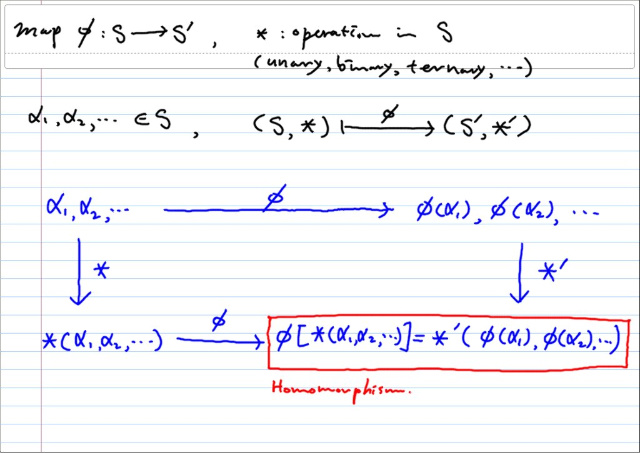 map ϕ : S ⟶ S′ , * : operation in S
(unary, binary, ternary, ⋯)
α₁, α₂, ⋯ ∈ S , (S, *) ⟼ϕ (S′, *′)
α₁, α₂, ⋯ ⟶ϕ ϕ(α₁), ϕ(α₂), ⋯
↓ * ↓ *′
*(α₁, α₂, ⋯) ⟶ϕ ϕ[*(α₁, α₂, ⋯)] = *′(ϕ(α₁), ϕ(α₂), ⋯)
Homomorphism.